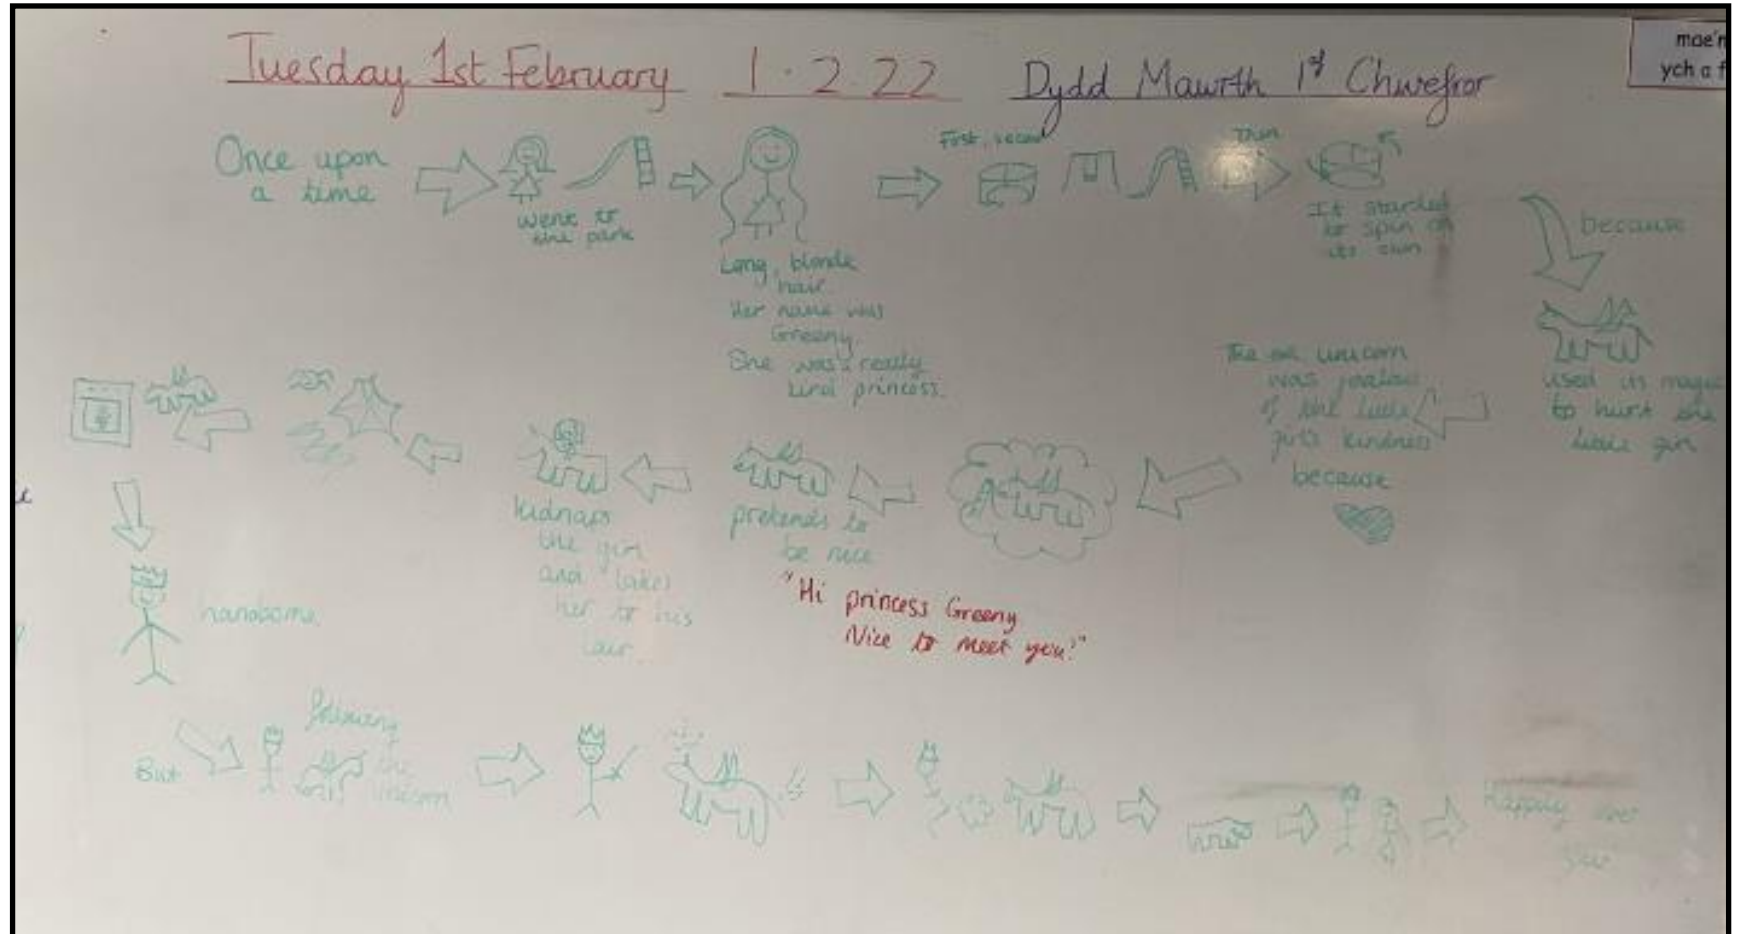 Tuesday 1st February 1.2.22 Dydd Mawrth 1st Chwefror
mae'n
ych a f
Once upon
a time
went to
the park
Long, blonde
hair.
Her name was
Greeny.
She was really
kind princess.
First, second
Then
It started
to spin on
its own
because
used its magic
to hurt the
little girl
The unicorn
was jealous
of the little
girl's kindness
because
pretends to
be nice
"Hi princess Greeny
Nice to meet you!"
kidnaps
the girl
and takes
her to his
lair.
handsome
But
following
the
unicorn
Happily ever